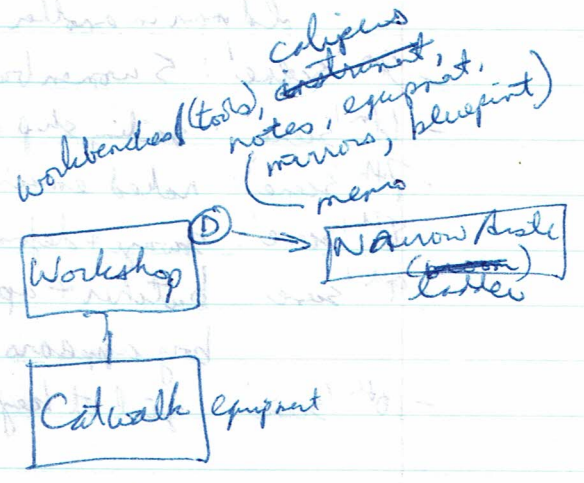 calipers
workbenches (tools), instrument,
notes, equipmnt,
(mirrors, blueprint)
memo
D
Workshop
Narrow Aisle
ladder
Catwalk equipment